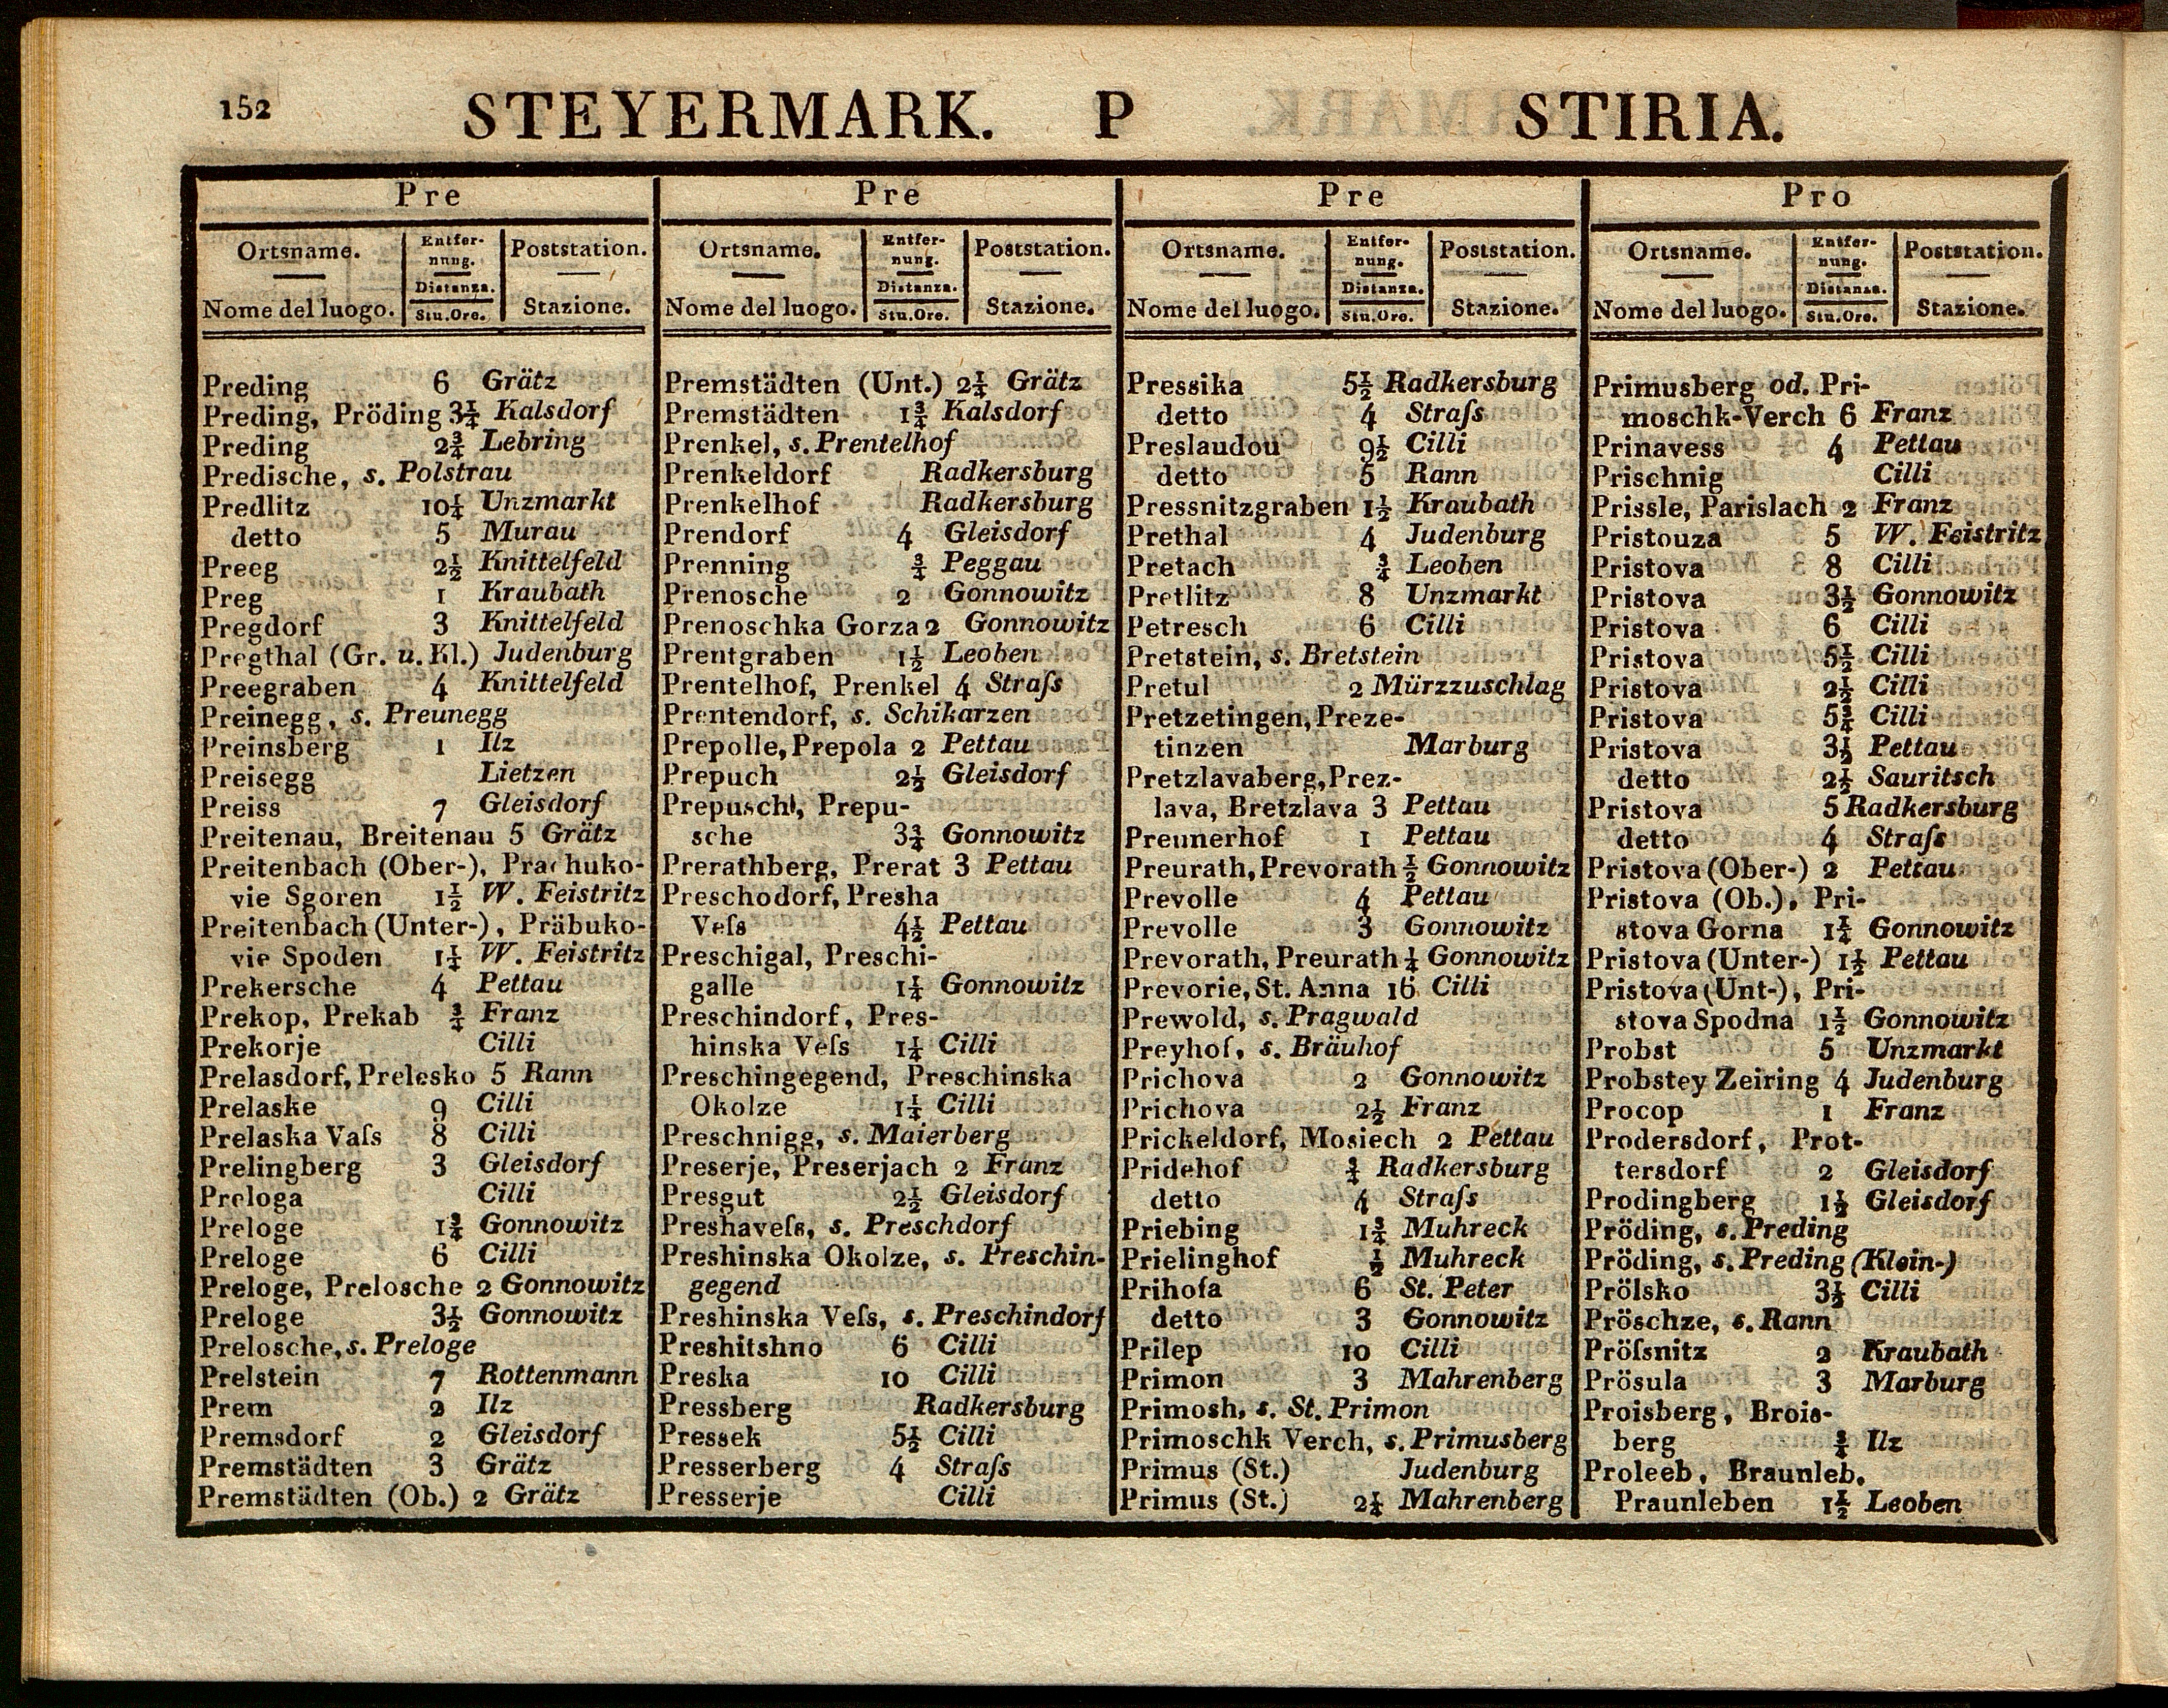 152
STEYERMARK. P STIRIA.
Pre
Ortsname. Entfer- Poststation.
nung.
Distanza.
Nome del luogo. Stu.Ore. Stazione.
Preding 6 Grätz
Preding, Pröding 3¼ Kalsdorf
Preding 2¾ Lebring
Predische, s. Polstrau
Predlitz 10¼ Unzmarkt
detto 5 Murau
Preeg 2½ Knittelfeld
Preg 1 Kraubath
Pregdorf 3 Knittelfeld
Pregthal (Gr. u. Kl.) Judenburg
Preegraben 4 Knittelfeld
Preinegg, s. Preunegg
Preinsberg 1 Ilz
Preisegg Lietzen
Preiss 7 Gleisdorf
Preitenau, Breitenau 5 Grätz
Preitenbach (Ober-), Prachuko-
vie Sgoren 1½ W. Feistritz
Preitenbach (Unter-), Präbuko-
vie Spoden 1¼ W. Feistritz
Prekersche 4 Pettau
Prekop, Prekab ¾ Franz
Prekorje Cilli
Prelasdorf, Prelesko 5 Rann
Prelaske 9 Cilli
Prelaska Vaſs 8 Cilli
Prelingberg 3 Gleisdorf
Prologa Cilli
Preloge 1¾ Gonnowitz
Preloge 6 Cilli
Preloge, Prelosche 2 Gonnowitz
Preloge 3½ Gonnowitz
Prelosche, s. Preloge
Prelstein 7 Rottenmann
Prem 2 Ilz
Premsdorf 2 Gleisdorf
Premstädten 3 Grätz
Premstädten (Ob.) 2 Grätz
Pre
Ortsname. Entfer- Poststation.
nung.
Distanza.
Nome del luogo. Stu.Ore. Stazione.
Premstädten (Unt.) 2¼ Grätz
Premstädten 1¾ Kalsdorf
Prenkel, s. Prentelhof
Prenkeldorf Radkersburg
Prenkelhof Radkersburg
Prendorf 4 Gleisdorf
Prenning ¾ Peggau
Prenosche 2 Gonnowitz
Prenoschka Gorza 2 Gonnowitz
Prentgraben 1½ Leoben
Prentelhof, Prenkel 4 Straſs
Prentendorf, s. Schikarzen
Prepolle, Prepola 2 Pettau
Prepuch 2½ Gleisdorf
Prepuschl, Prepu-
sche 3¾ Gonnowitz
Prerathberg, Prerat 3 Pettau
Preschodorf, Presha
Veſs 4½ Pettau
Preschigal, Preschi-
galle 1¼ Gonnowitz
Preschindorf, Pres-
hinska Veſs 1¼ Cilli
Preschingegend, Preschinska
Okolze 1¼ Cilli
Preschnigg, s. Maierberg
Preserje, Preserjach 2 Franz
Presgut 2½ Gleisdorf
Preshaveſs, s. Preschdorf
Preshinska Okolze, s. Preschin-
gegend
Preshinska Veſs, s. Preschindorf
Preshitshno 6 Cilli
Preska 10 Cilli
Pressberg Radkersburg
Pressek 5½ Cilli
Presserberg 4 Straſs
Presserje Cilli
Pre
Ortsname. Entfer- Poststation.
nung.
Distanza.
Nome del luogo. Stu.Ore. Stazione.
Pressika 5½ Radkersburg
detto 4 Straſs
Preslaudou 9½ Cilli
detto 5 Rann
Pressnitzgraben 1½ Kraubath
Prethal 4 Judenburg
Pretach ¾ Leoben
Pretlitz 8 Unzmarkt
Petresch 6 Cilli
Pretstein, s. Bretstein
Pretul 2 Mürzzuschlag
Pretzetingen, Preze-
tinzen Marburg
Pretzlavaberg, Prez-
lava, Bretzlava 3 Pettau
Preunerhof 1 Pettau
Preurath, Prevorath ½ Gonnowitz
Prevolle 4 Pettau
Prevolle 3 Gonnowitz
Prevorath, Preurath ¼ Gonnowitz
Prevorie, St. Anna 16 Cilli
Prewold, s. Pragwald
Preyhof, s. Bräuhof
Prichova 2 Gonnowitz
Prichova 2½ Franz
Prickeldorf, Mosiech 2 Pettau
Pridehof ¾ Radkersburg
detto 4 Straſs
Priebing 1¾ Muhreck
Prielinghof ½ Muhreck
Prihofa 6 St. Peter
detto 3 Gonnowitz
Prilep 10 Cilli
Primon 3 Mahrenberg
Primosh, s. St. Primon
Primoschk Verch, s. Primusberg
Primus (St.) Judenburg
Primus (St.) 2¼ Mahrenberg
Pro
Ortsname. Entfer- Poststation.
nung.
Distanza.
Nome del luogo. Stu.Ore. Stazione.
Primusberg od. Pri-
moschk-Verch 6 Franz
Prinavess 4 Pettau
Prischnig Cilli
Prissle, Parislach 2 Franz
Pristouza 5 W. Feistritz
Pristova 8 Cilli
Pristova 3½ Gonnowitz
Pristova 6 Cilli
Pristova 5½ Cilli
Pristova 2½ Cilli
Pristova 5¾ Cilli
Pristova 3½ Pettau
detto 2½ Sauritsch
Pristova 5 Radkersburg
detto 4 Straſs
Pristova (Ober-) 2 Pettau
Pristova (Ob.), Pri-
stova Gorna 1¾ Gonnowitz
Pristova (Unter-) 1½ Pettau
Pristova (Unt-), Pri-
stova Spodna 1½ Gonnowitz
Probst 5 Unzmarkt
Probstey Zeiring 4 Judenburg
Procop 1 Franz
Prodersdorf, Prot-
tersdorf 2 Gleisdorf
Prodingberg 1½ Gleisdorf
Pröding, s. Preding
Pröding, s. Preding (Klein-)
Prölsko 3½ Cilli
Pröschze, s. Rann
Pröſsnitz 2 Kraubath
Prösula 3 Marburg
Proisberg, Brois-
berg ¾ Ilz
Proleeb, Braunleb,
Praunleben 1½ Leoben